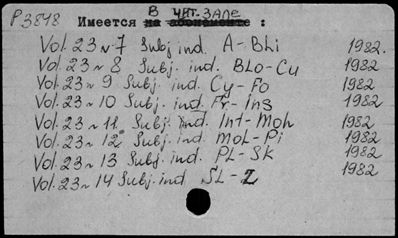 P3848 В ЧИТ. ЗАЛЕ
Имеется на абонементе :
Vol. 23 N 7 Subj ind. A-Bhi 1982.
Vol. 23 N 8 Subj. ind. BLo-Cu 1982
Vol. 23 N 9 Subj. ind. Cy-Fo 1982
Vol. 23 N 10 Subj. ind. Fr-Ins 1982
Vol. 23 N 11 Subj. ind. Int-Moh 1982
Vol. 23 N 12 Subj. ind. MoL-Pi 1982
Vol. 23 N 13 Subj. ind. PL-Sk 1982
Vol. 23 N 14 Subj. ind SL-Z 1982